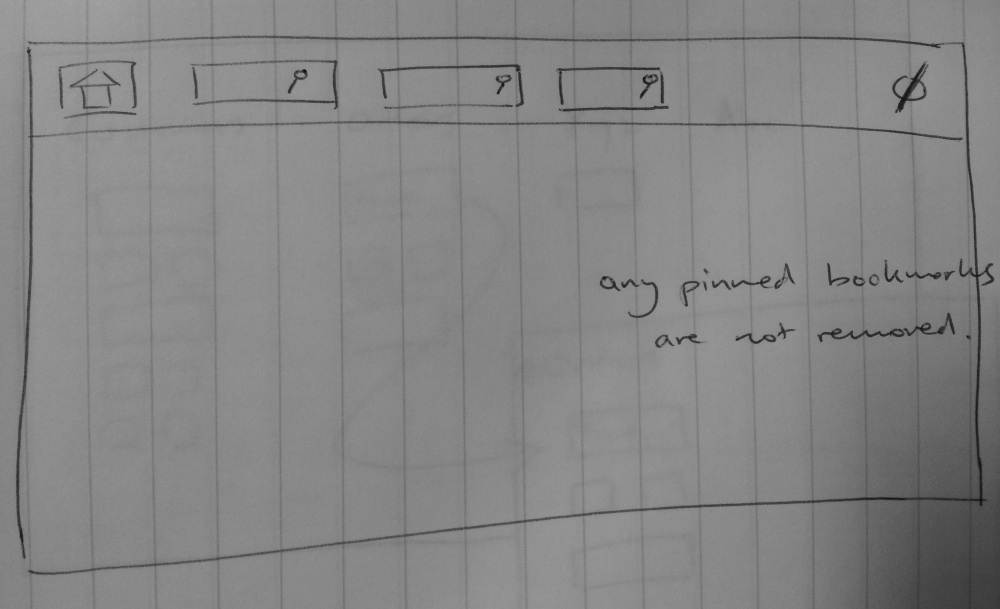 any pinned bookmarks
are not removed.